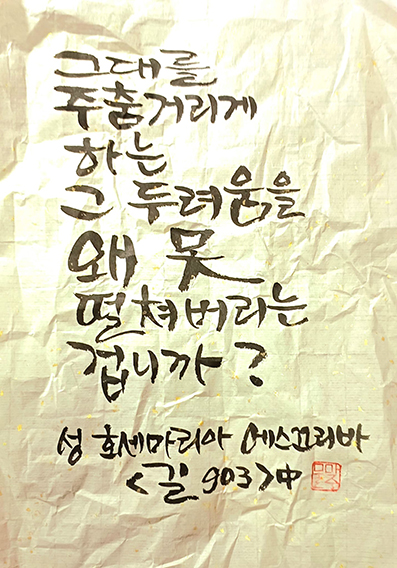 그대를
주춤거리게
하는
그 두려움을
왜 못
떨쳐버리는
겁니까?
성 호세마리아 에스끄리바
<길 903>中